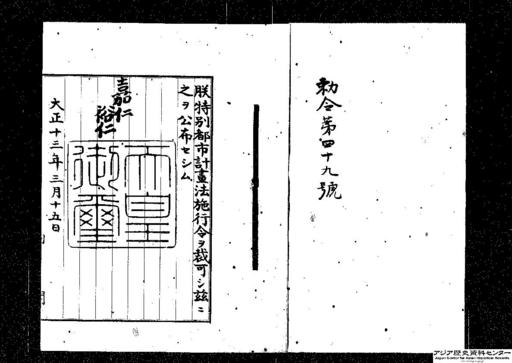 勅令第四十九號
朕特別都市計畫法施行令ヲ裁可シ茲ニ
之ヲ公布セシム
嘉仁
裕仁
天皇
御璽
大正十三年三月十五日
アジア歴史資料センター
Japan Center for Asian Historical Records